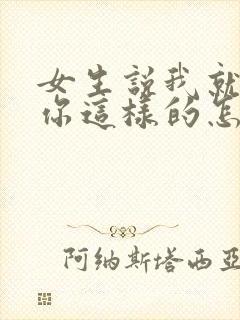 女生說我就
你這樣的怎
阿纳斯塔西亚